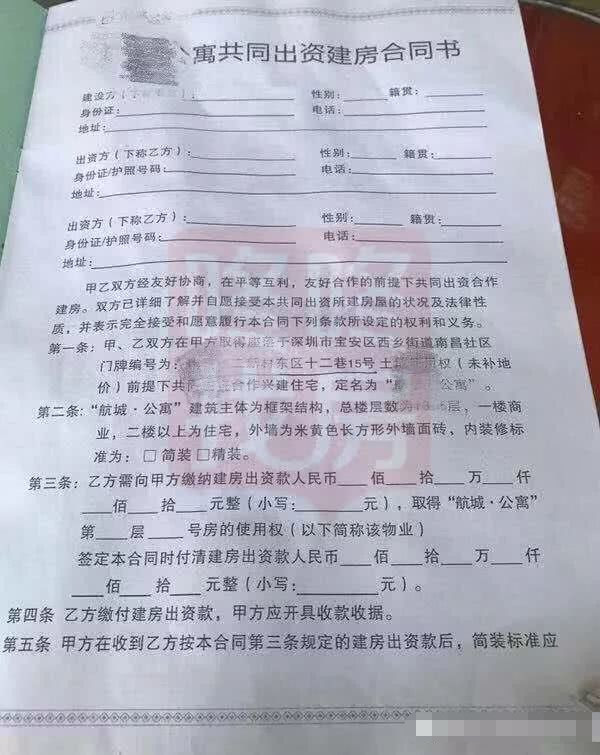 寓共同出资建房合同书
建设方（ 性别： 籍贯：
身份证： 电话：
地址：
出资方（下称乙方）： 性别： 籍贯：
身份证/护照号码： 电话：
地址：
出资方（下称乙方）： 性别： 籍贯：
身份证/护照号码： 电话：
地址：
甲乙双方经友好协商，在平等互利，友好合作的前提下共同出资合作
建房。双方已详细了解并自愿接受本共同出资所建房屋的状况及法律性
质，并表示完全接受和愿意履行本合同下列条款所设定的权利和义务。
第一条：甲、乙双方在甲方取得座落于深圳市宝安区西乡街道南昌社区
门牌编号为： 新村东区十二巷15号 土 权（未补地
价）前提下共 合作兴建住宅，定名为“ 公寓”。
第二条：“航城·公寓”建筑主体为框架结构，总楼层数为 层，一楼商
业，二楼以上为住宅，外墙为米黄色长方形外墙面砖，内装修标
准为：□简装 □精装。
第三条：乙方需向甲方缴纳建房出资款人民币 佰 拾 万 仟
佰 拾 元整（小写： 元），取得“航城·公寓”
第 层 号房的使用权（以下简称该物业）
签定本合同时付清建房出资款人民币 佰 拾 万 仟
佰 拾 元整（小写： 元）。
第四条 乙方缴付建房出资款，甲方应开具收款收据。
第五条 甲方在收到乙方按本合同第三条规定的建房出资款后，简装标准应